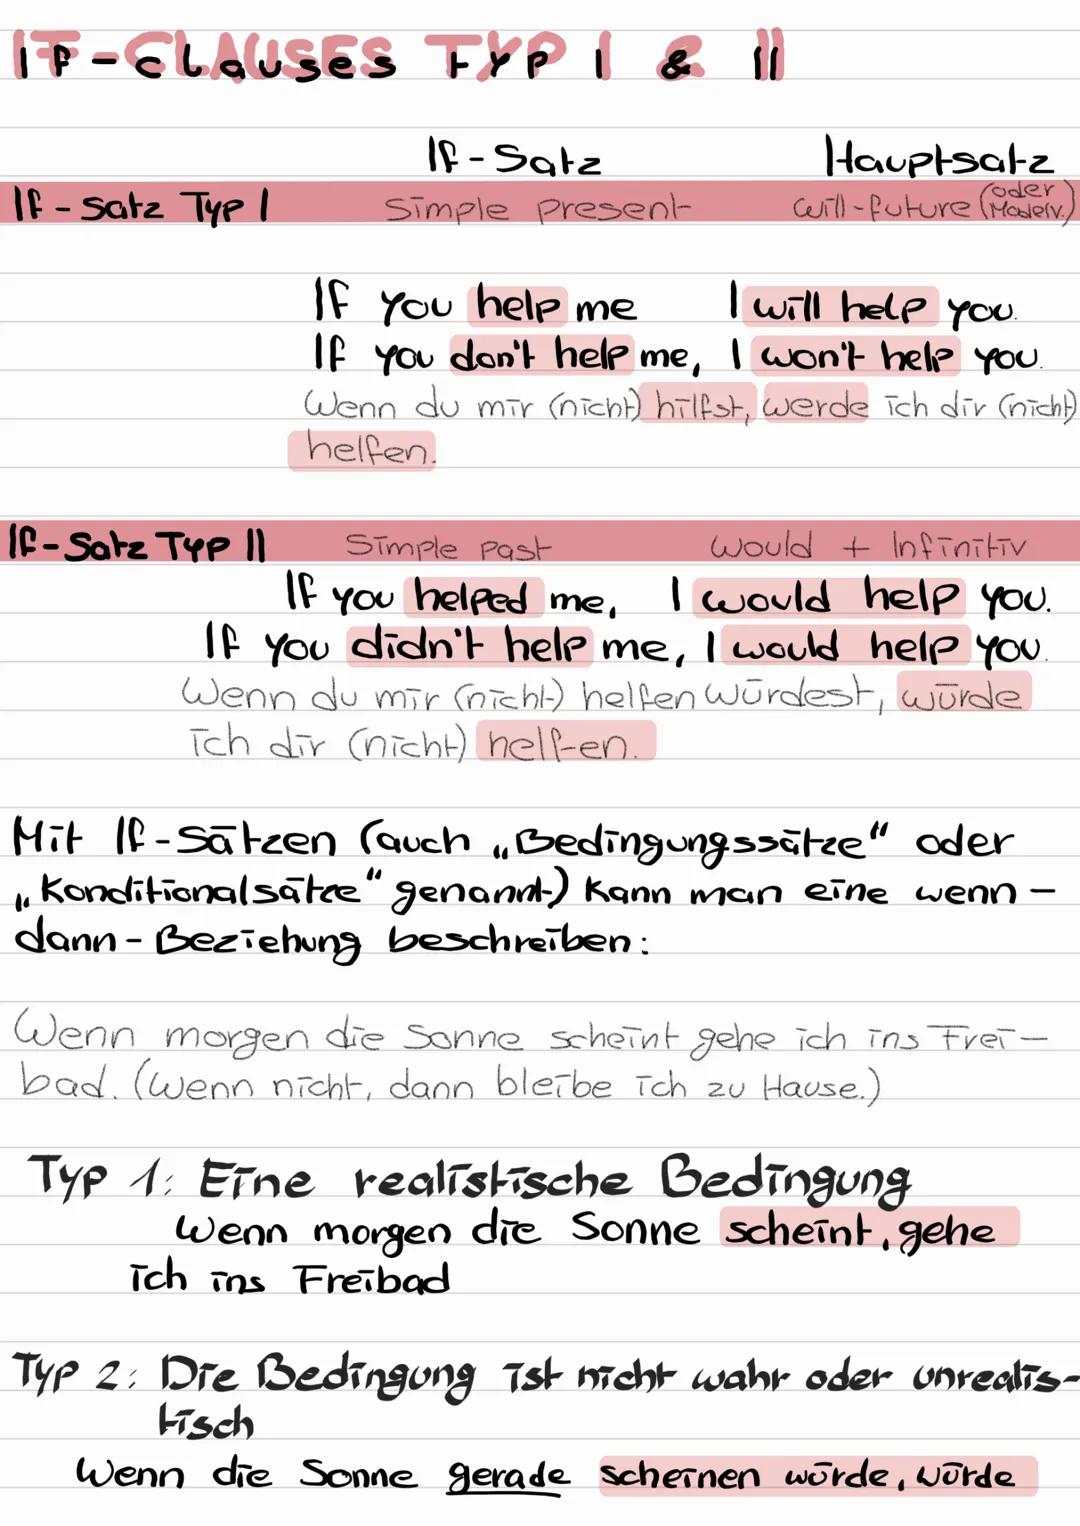 If-Clauses Typ I & II
If-Satz Hauptsatz
If-Satz Typ I Simple present will-future (oder Modalv.)
If you help me I will help you.
If you don't help me, I won't help you.
Wenn du mir (nicht) hilfst, werde ich dir (nicht)
helfen.
If-Satz Typ II Simple past would + Infinitiv
If you helped me, I would help you.
If you didn't help me, I would help you.
Wenn du mir (nicht) helfen würdest, würde
ich dir (nicht) helfen.
Mit If-Sätzen (auch „Bedingungssätze" oder
„Konditionalsätze" genannt) kann man eine wenn-
dann-Beziehung beschreiben:
Wenn morgen die Sonne scheint gehe ich ins Frei-
bad. (Wenn nicht, dann bleibe ich zu Hause.)
Typ 1: Eine realistische Bedingung
Wenn morgen die Sonne scheint, gehe
ich ins Freibad
Typ 2: Die Bedingung ist nicht wahr oder unrealis-
tisch
Wenn die Sonne gerade scheinen würde, würde